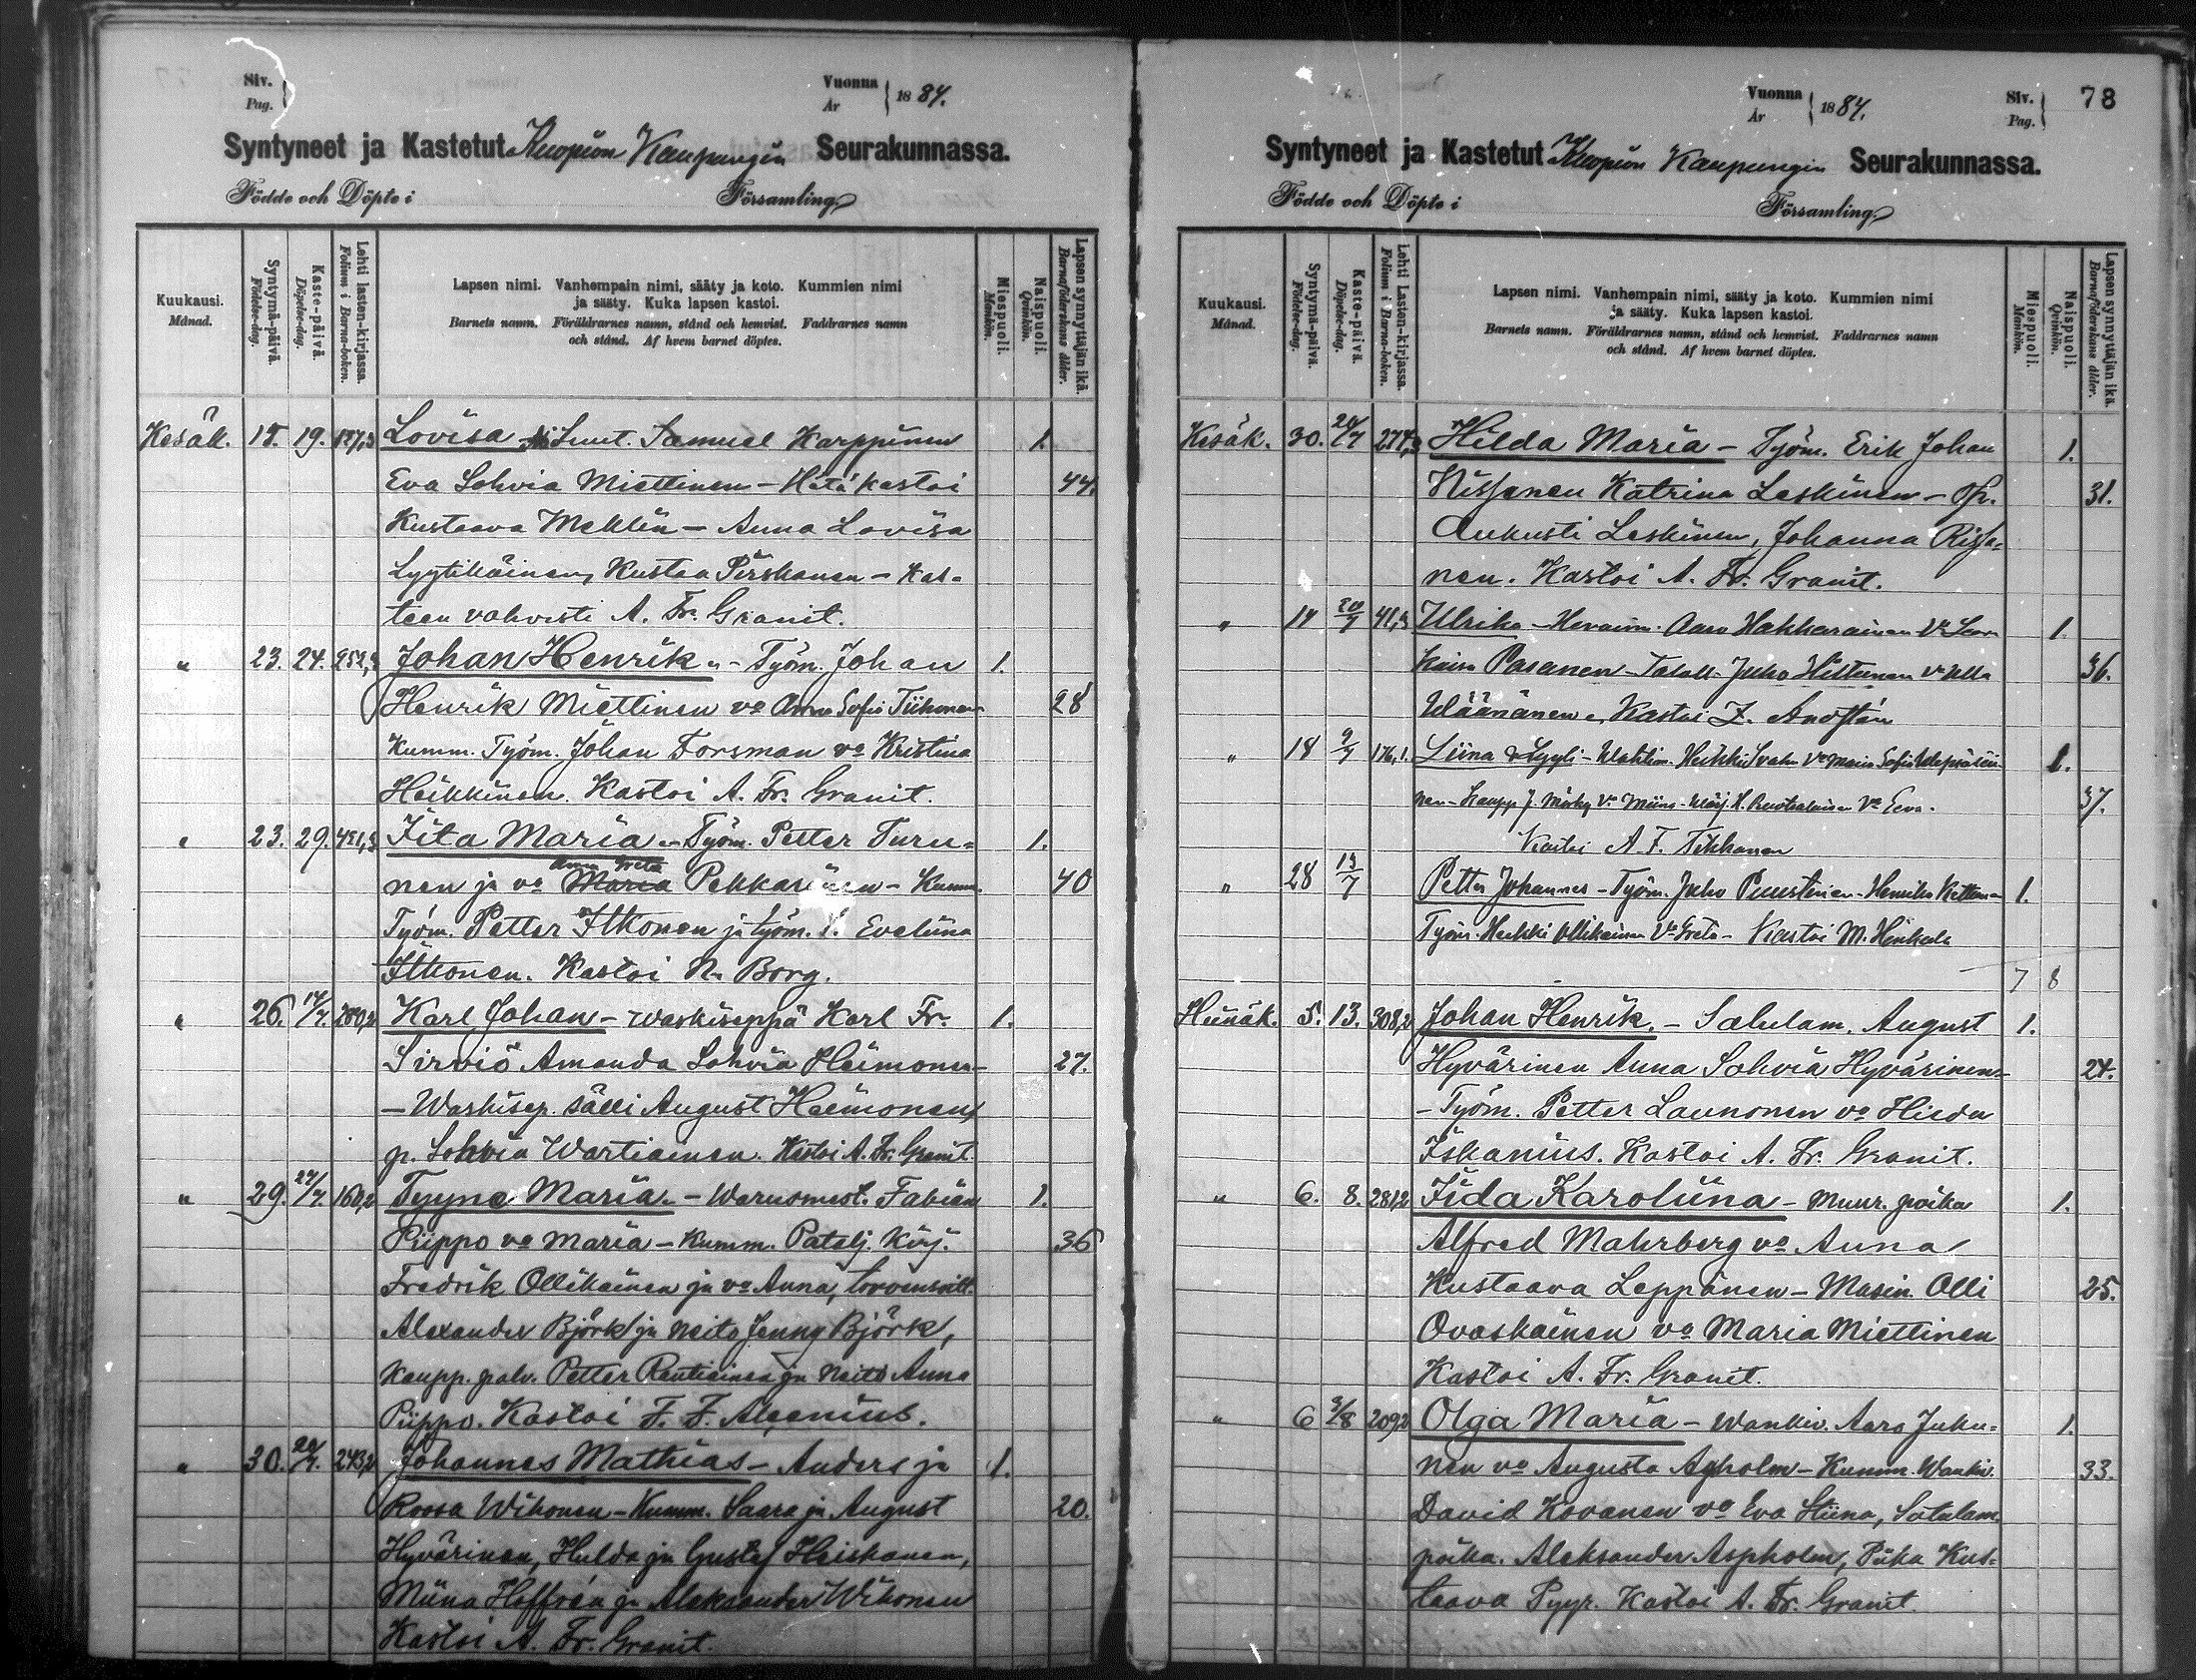 Siv.
Pag.
Vuonna
År
1884.
Syntyneet ja Kastetut Kuopion Kaupungin Seurakunnassa.
Födde och Döpte i Församling
Kuukausi.
Månad.
Syntymä-päivä.
Födelse-dag.
Kaste-päivä.
Döpelse-dag.
Lehti lasten-kirjassa.
Folium i Barna-boken.
Lapsen nimi. Vanhempain nimi, sääty ja koto. Kummien nimi
ja sääty. Kuka lapsen kastoi.
Barnets namn. Föräldrarnes namn, stånd och hemvist. Faddrarnes namn
och stånd. Af hvem barnet döptes.
Miespuoli.
Mankön.
Naispuoli.
Qvinkön.
Lapsen synnyttäjän ikä.
Barnaföderskans ålder.
Kesäk. 15. 19. Lovisa Samuel Karppinen 1.
Eva Sohvia Miettinen - Hätä kastoi 44.
Kustaava Meklin - Anna Lovisa
Lyytikäinen, Kustaa Pirskanen - Kas-
teen vahvisti A. Fr. Granit.
" 23. 24. Johan Henrik - Työm. Johan 1.
Henrik Miettinen vo Anna Sofia Tiihonen 28
Kumm. Työm. Johan Forsman vo Kristina
Heikkinen. Kastoi A. Fr. Granit.
" 23. 29. Iita Maria - Työm. Petter Turu- 1.
Anna Greta
nen ja vo Maria Pekkarinen - Kumm. 40
Työm. Petter Itkonen ja työm. Eveliina
Itkonen. Kastoi N. Borg.
" 26. 14/7. Karl Johan - Waskiseppä Karl Fr. 1.
Sirviö Amanda Sohvia Heimonen - 27.
- Waskisep. sälli August Heimonen,
p. Sohvia Wartiainen. Kastoi A. Fr. Granit.
" 29. 27/7. 160,2 Tyyne Maria - Warusmest. Fabian 1.
Piippo vo Maria - Kumm. Patalj. Kirj. 36
Fredrik Ollikainen ja vo Anna, torvensoitt.
Alexander Björk ja neito Jenny Björk,
Kaupp. palv. Petter Rautiainen ja Neito Anna
Piippo. Kastoi F. F. Alcenius.
" 30. 20/7. 243,2 Johannes Mathias - Anders ja 1.
Roosa Wihonen - Kumm. Saara ja August 20.
Hyvärinen, Hulda ja Gustaf Heiskanen,
Miina Hoffrén ja Aleksander Wihonen
Kastoi A. Fr. Granit.
Vuonna
År
1884.
Siv.
Pag.
78
Syntyneet ja Kastetut Kuopion Kaupungin Seurakunnassa.
Födde och Döpte i Församling
Kuukausi.
Månad.
Syntymä-päivä.
Födelse-dag.
Kaste-päivä.
Döpelse-dag.
Lehti Lasten-kirjassa.
Folium i Barna-boken.
Lapsen nimi. Vanhempain nimi, sääty ja koto. Kummien nimi
ja sääty. Kuka lapsen kastoi.
Barnets namn. Föräldrarnes namn, stånd och hemvist. Faddrarnes namn
och stånd. Af hvem barnet döptes.
Miespuoli.
Mankön.
Naispuoli.
Qvinkön.
Lapsen synnyttäjän ikä.
Barnaföderskans ålder.
Kesäk. 30. 20/7 Hilda Maria - Työm. Erik Johan 1.
Nissanen Katrina Leskinen - 31.
Aukusti Leskinen, Johanna Rissa-
nen. Kastoi A. Fr. Granit.
" 14 20/7 Ulrika - Aaro Hakkarainen 1.
Kaisa Pasanen - Juho Hiltunen vo Ulla 36.
Wäänänen, Kastoi
" 18 9/7 176,1. Liina Lyyli - Heikki vo Maria Sofia 1.
nen - Kaupp. J. vo Miina - vo Eeva. 37.
Kastoi A. F. Tikkanen
" 28 13/7 Petter Johannes - Työm. Juho Puustinen - Henrika 1.
Työm. Heikki Ollikainen vo Greta - Kastoi M.
7 8
Heinäk. 5. 13. 308,2 Johan Henrik. - Satulam. August 1.
Hyvärinen Anna Sohvia Hyvärinen - 24.
- Työm. Petter Launonen vo Hilda
Iskanius. Kastoi A. Fr. Granit.
" 6. 8. 281,2 Iida Karoliina - Muur. poika 1.
Alfred Mahrberg vo Anna
Kustaava Leppänen - Masin. Olli 25.
Ovaskainen vo Maria Miettinen
Kastoi A. Fr. Granit.
" 6 3/8 209,2 Olga Maria - Wankiv. Aaro Juhu- 1.
nen vo Augusta Aspholm - Kumm. Wankiv. 33.
David Kovanen vo Eva Stiina, Satulam.
poika. Aleksander Aspholm, Piika Kus-
taava Pyyr. Kastoi A. Fr. Granit.